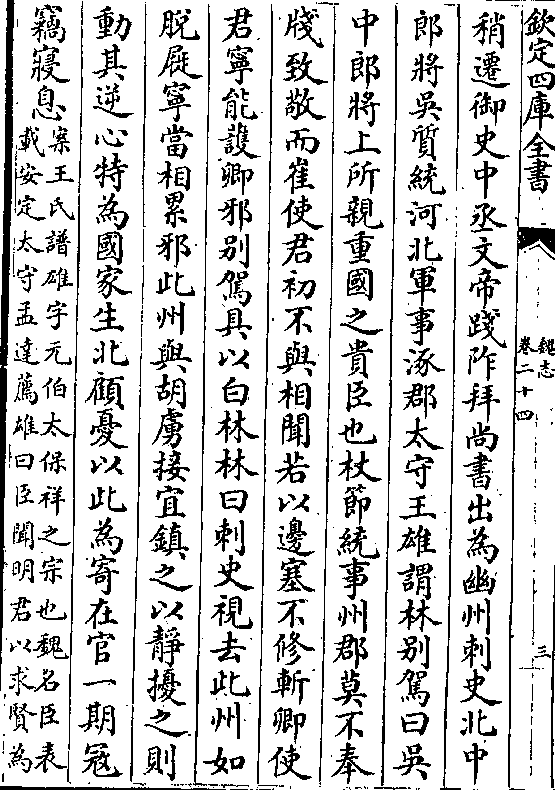 欽定四庫全書
魏志
卷二十四
三
稍遷御史中丞文帝踐阼拜尚書出為幽州刺史北中
郎將吳質統河北軍事涿郡太守王雄謂林别駕曰吳
中郎將上所親重國之貴臣也杖節統事州郡莫不奉
牋致敬而崔使君初不與相聞若以邊塞不修斬卿使
君寧能護卿邪别駕具以白林林曰刺史視去此州如
脱屣寧當相累邪此州與胡虜接宜鎮之以靜擾之則
動其逆心特為國家生北顧憂以此為寄在官一期寇
竊寢息
案王氏譜雄字元伯太保祥之宗也魏名臣表
載安定太守孟達薦雄曰臣聞明君以求賢為